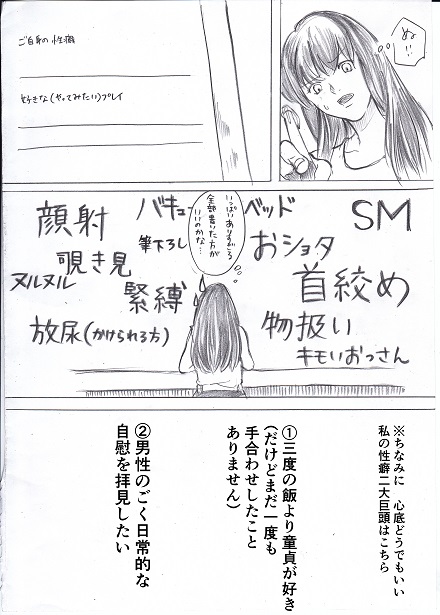 ぬ!!
ご自身の性癖
好きな(やってみたい)プレイ
SM
ベッド
おショタ
首絞め
物扱い
キモいおっさん
いっぱいありすぎる
全部書いた方が
いいのかな…
バキュー
筆下ろし
緊縛
顔射
覗き見
ヌルヌル
放尿(かけられる方)
※ちなみに 心底どうでもいい
私の性癖二大巨頭はこちら
①三度の飯より童貞が好き
(だけどまだ一度も
手合わせしたこと
ありません)
②男性のごく日常的な
自慰を拝見したい